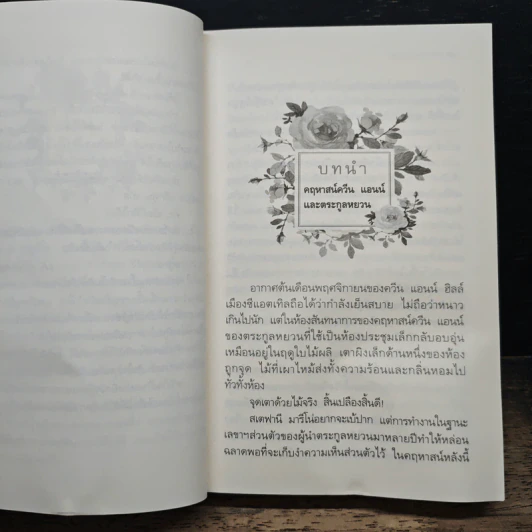 บทนำ
คฤหาสน์ควีน แอนน์
และตระกูลหยวน
อากาศต้นเดือนพฤศจิกายนของควีน แอนน์ ฮิลล์
เมืองซีแอตเทิลถือได้ว่ากำลังเย็นสบาย ไม่ถือว่าหนาว
เกินไปนัก แต่ในห้องสันทนาการของคฤหาสน์ควีน แอนน์
ของตระกูลหยวนที่ใช้เป็นห้องประชุมเล็กกลับอบอุ่น
เหมือนอยู่ในฤดูใบไม้ผลิ เตาผิงเล็กด้านหนึ่งของห้อง
ถูกจุด ไม้ที่เผาไหม้ส่งทั้งความร้อนและกลิ่นหอมไป
ทั่วทั้งห้อง
จุดเตาด้วยไม้จริง สิ้นเปลืองสิ้นดี!
สเตฟานี มาริโน่อยากจะเบ้ปาก แต่การทำงานในฐานะ
เลขาฯส่วนตัวของผู้นำตระกูลหยวนมาหลายปีทำให้หล่อน
ฉลาดพอที่จะเก็บงำความเห็นส่วนตัวไว้ ในคฤหาสน์หลังนี้